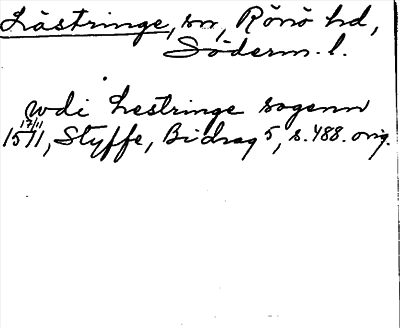 Lästringe, sn, Rönö hd,
Söderm. l.
wdi Lestringe sogenn
17/11 1571, Styffe, Bidrag 5, s. 488. orig.